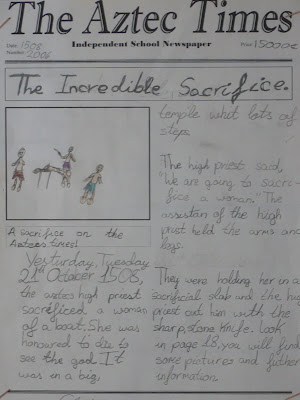 The Aztec Times
Date 1508
Number 2006
Independent School Newspaper
Price 15000€
The Incredible Sacrifice.
A sacrifice on the
Aztecs times!
Yesturday, Tuesday
21st October 1508,
the aztecs high priest
sacrificed a woman
of a boat. She was
honoured to die to
see the god. It
was in a big,
temple whit lots of
steps
The high priest said,
"We are going to sacri-
fice a woman." The
assistan of the high
prist held the arms and
legs.
They were holding her in a
sacrificial slab and the hig
priest cut him with the
sharp, stone knife. Look
in page 18, you will find
some pictures and futher
information